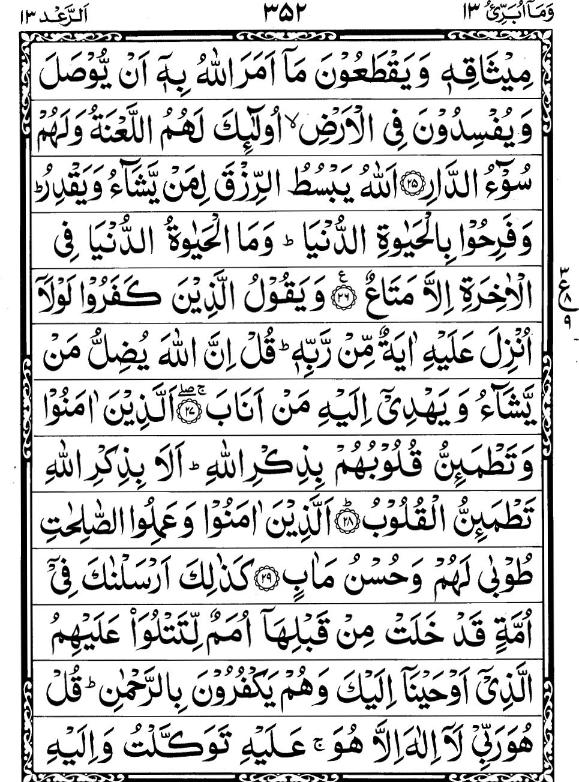 وَمَآ اُبَرِّئُ ۱۳ ۳۵۲ اَلرَّعْد ۱۳
مِيْثَاقِهٖ وَيَقْطَعُوْنَ مَآ اَمَرَ اللّٰهُ بِهٖٓ اَنْ يُّوْصَلَ
وَيُفْسِدُوْنَ فِى الْاَرْضِ ۙ اُولٰٓئِكَ لَهُمُ اللَّعْنَةُ وَلَهُمْ
سُوْٓءُ الدَّارِ ۟۲۵ اَللّٰهُ يَبْسُطُ الرِّزْقَ لِمَنْ يَّشَآءُ وَيَقْدِرُ ؕ
وَفَرِحُوْا بِالْحَيٰوةِ الدُّنْيَا ؕ وَمَا الْحَيٰوةُ الدُّنْيَا فِى
الْاٰخِرَةِ اِلَّا مَتَاعٌ ۟۲۶ ع وَيَقُوْلُ الَّذِيْنَ كَفَرُوْا لَوْلَآ
۳ ع ۸ ۹
اُنْزِلَ عَلَيْهِ اٰيَةٌ مِّنْ رَّبِّهٖ ؕ قُلْ اِنَّ اللّٰهَ يُضِلُّ مَنْ
يَّشَآءُ وَيَهْدِىْٓ اِلَيْهِ مَنْ اَنَابَ ۟۲۷ صلے ج اَلَّذِيْنَ اٰمَنُوْا
وَتَطْمَئِنُّ قُلُوْبُهُمْ بِذِكْرِ اللّٰهِ ؕ اَلَا بِذِكْرِ اللّٰهِ
تَطْمَئِنُّ الْقُلُوْبُ ؕ۲۸ اَلَّذِيْنَ اٰمَنُوْا وَعَمِلُوا الصّٰلِحٰتِ
طُوْبٰى لَهُمْ وَحُسْنُ مَاٰبٍ ۟۲۹ كَذٰلِكَ اَرْسَلْنٰكَ فِىْٓ
اُمَّةٍ قَدْ خَلَتْ مِنْ قَبْلِهَآ اُمَمٌ لِّتَتْلُوَا۟ عَلَيْهِمُ
الَّذِىْٓ اَوْحَيْنَآ اِلَيْكَ وَهُمْ يَكْفُرُوْنَ بِالرَّحْمٰنِ ؕ قُلْ
هُوَ رَبِّىْ لَآ اِلٰهَ اِلَّا هُوَ ۚ عَلَيْهِ تَوَكَّلْتُ وَاِلَيْهِ